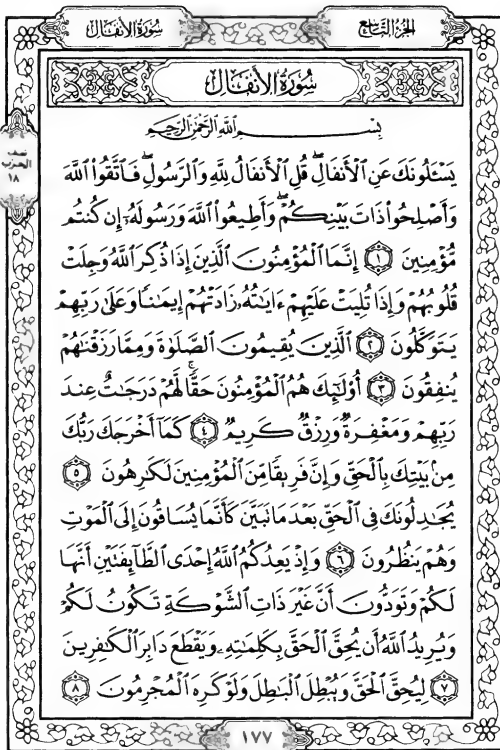 سُورَةُ الأَنفَال
الجُزءُ التَّاسِع
نصف
الحزب
١٨
سُورَةُ الأَنفَالِ
بِسْمِ اللَّهِ الرَّحْمَٰنِ الرَّحِيمِ
يَسْـَٔلُونَكَ عَنِ ٱلْأَنفَالِۖ قُلِ ٱلْأَنفَالُ لِلَّهِ وَٱلرَّسُولِۖ فَٱتَّقُوا۟ ٱللَّهَ
وَأَصْلِحُوا۟ ذَاتَ بَيْنِكُمْۖ وَأَطِيعُوا۟ ٱللَّهَ وَرَسُولَهُۥٓ إِن كُنتُم
مُّؤْمِنِينَ ١ إِنَّمَا ٱلْمُؤْمِنُونَ ٱلَّذِينَ إِذَا ذُكِرَ ٱللَّهُ وَجِلَتْ
قُلُوبُهُمْ وَإِذَا تُلِيَتْ عَلَيْهِمْ ءَايَـٰتُهُۥ زَادَتْهُمْ إِيمَـٰنًا وَعَلَىٰ رَبِّهِمْ
يَتَوَكَّلُونَ ٢ ٱلَّذِينَ يُقِيمُونَ ٱلصَّلَوٰةَ وَمِمَّا رَزَقْنَـٰهُمْ
يُنفِقُونَ ٣ أُو۟لَـٰٓئِكَ هُمُ ٱلْمُؤْمِنُونَ حَقًّاۚ لَّهُمْ دَرَجَـٰتٌ عِندَ
رَبِّهِمْ وَمَغْفِرَةٌ وَرِزْقٌ كَرِيمٌ ٤ كَمَآ أَخْرَجَكَ رَبُّكَ
مِنۢ بَيْتِكَ بِٱلْحَقِّ وَإِنَّ فَرِيقًا مِّنَ ٱلْمُؤْمِنِينَ لَكَـٰرِهُونَ ٥
يُجَـٰدِلُونَكَ فِى ٱلْحَقِّ بَعْدَ مَا تَبَيَّنَ كَأَنَّمَا يُسَاقُونَ إِلَى ٱلْمَوْتِ
وَهُمْ يَنظُرُونَ ٦ وَإِذْ يَعِدُكُمُ ٱللَّهُ إِحْدَى ٱلطَّآئِفَتَيْنِ أَنَّهَا
لَكُمْ وَتَوَدُّونَ أَنَّ غَيْرَ ذَاتِ ٱلشَّوْكَةِ تَكُونُ لَكُمْ
وَيُرِيدُ ٱللَّهُ أَن يُحِقَّ ٱلْحَقَّ بِكَلِمَـٰتِهِۦ وَيَقْطَعَ دَابِرَ ٱلْكَـٰفِرِينَ
٧ لِيُحِقَّ ٱلْحَقَّ وَيُبْطِلَ ٱلْبَـٰطِلَ وَلَوْ كَرِهَ ٱلْمُجْرِمُونَ ٨
١٧٧